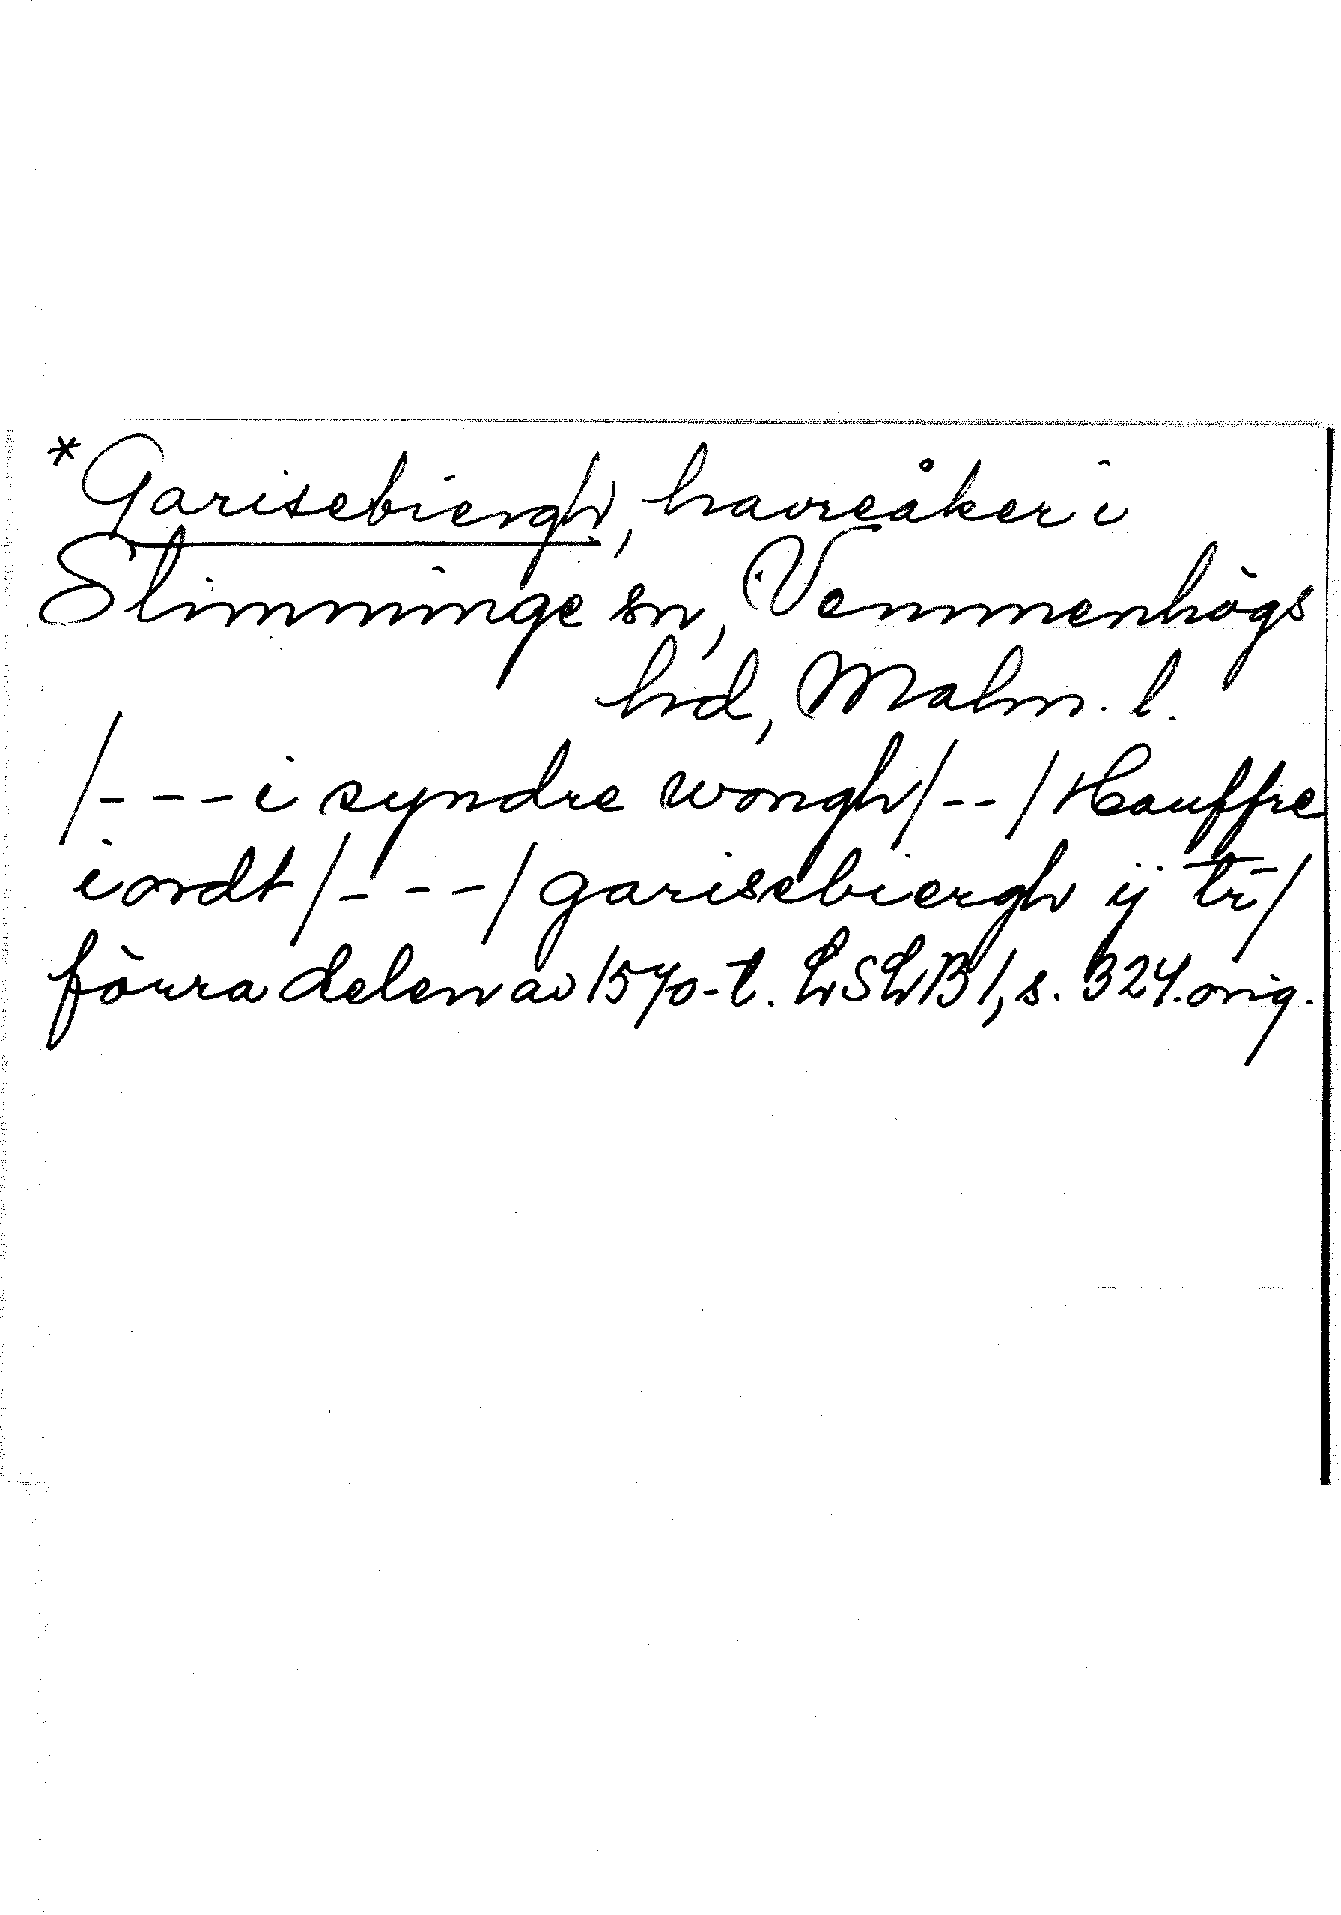 *Garisebiergh, havreåker i
Slimminge sn, Vemmenhögs
hd, Malm. l.
/- - - i syndre wongh/- -/Hauffre
iordt/- - -/garisebiergh ij tr̄/
förra delen av 1570-t. LSLB 1, s. 324. orig.